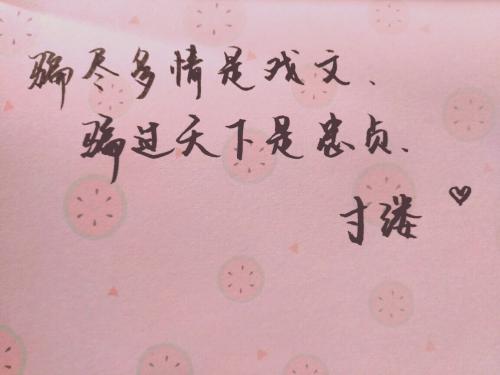 骗尽多情是戏文、
骗过天下是忠贞、
寸缕♡